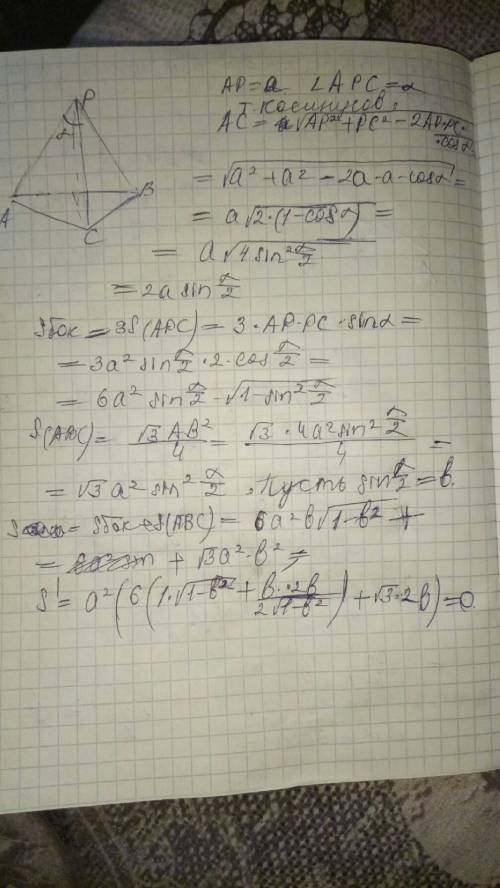 P
α
A
B
C
AP = a ∠APC = α
т. косинусов,
AC = √AP² + PC² - 2AP·PC·
·cosα
= √a² + a² - 2a·a·cosα =
= a√2·(1-cosα) =
= a√4sin²α/2
= 2a sin α/2
Sбок = 3S(APC) = 3·AP·PC·sinα =
= 3a² sin α/2 · 2·cos α/2 =
= 6a² sin α/2 · √1-sin² α/2
S(ABC) = √3 AB²/4 = √3·4a² sin² α/2 /4 =
= √3 a² sin² α/2, Пусть sin α/2 = b.
S = Sбок + S(ABC) = 6a²b√1-b² +
= + √3a²·b² =
S' = a²(6(1·√1-b² + b·2b/2√1-b²) + √3·2b) = 0